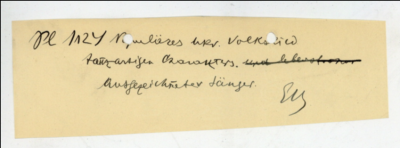 Pl 1124 Populäres ukr. Volkslied
tanzartigen Charakters.
Ausgezeichneter Sänger.